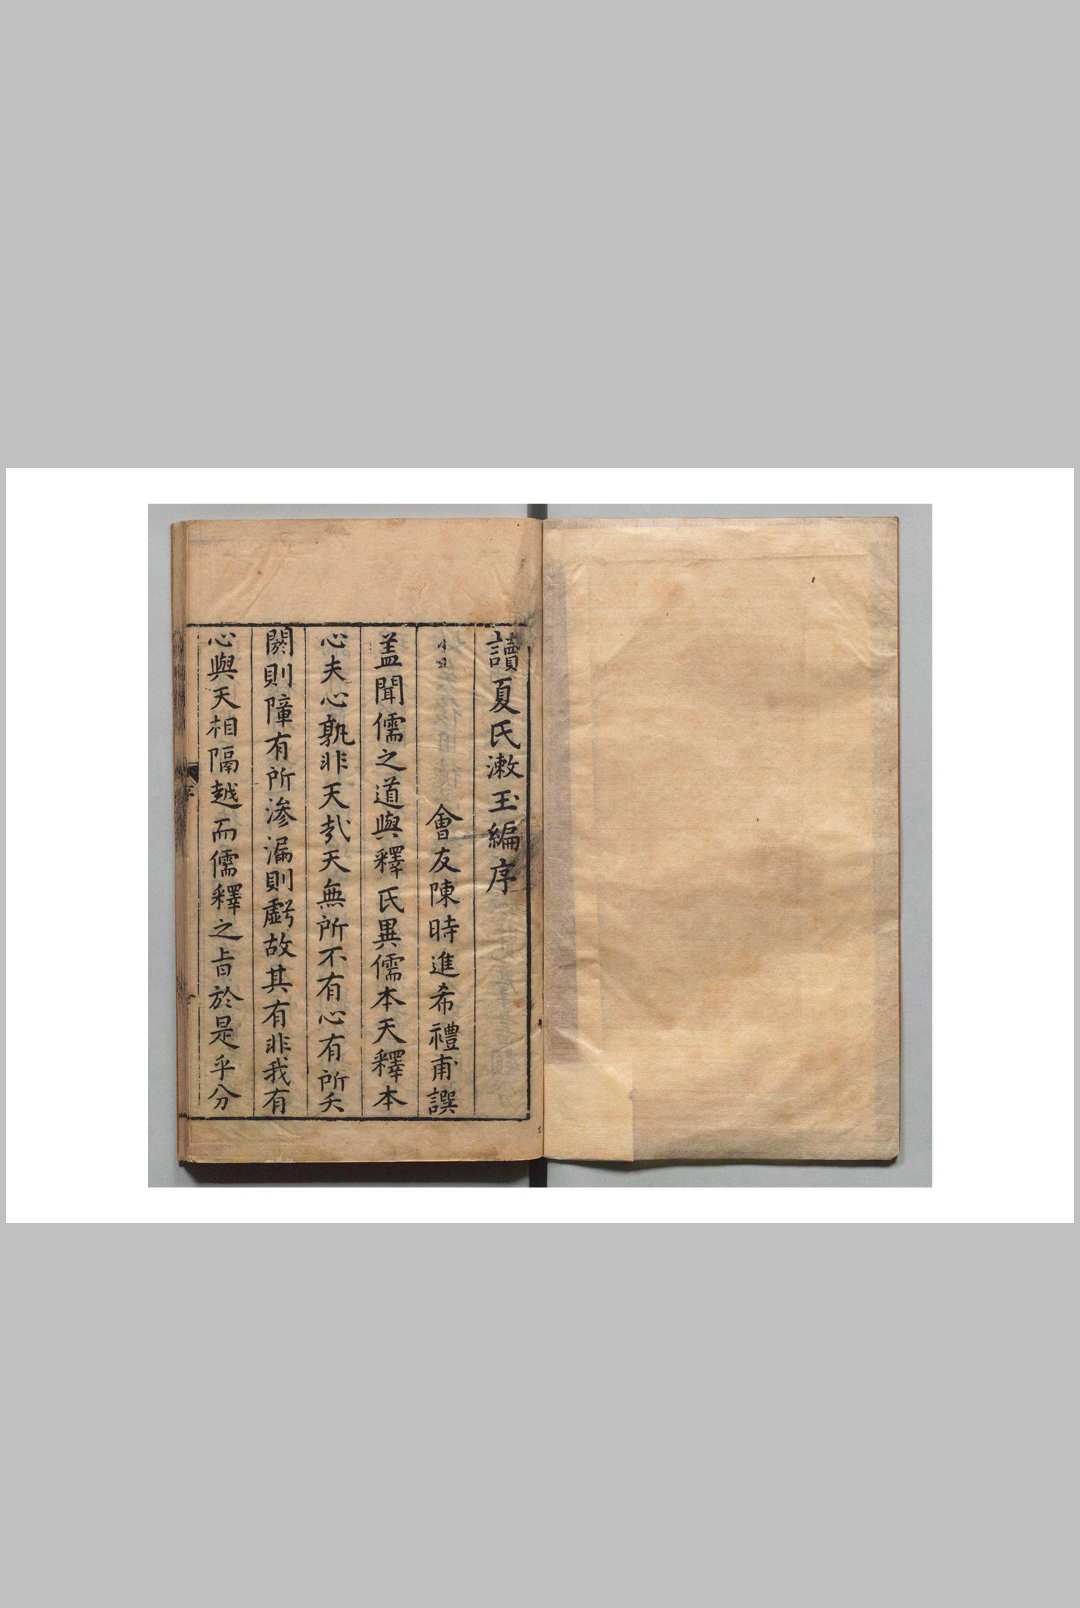 讀夏氏漱玉編序
會友陳時進希禮甫譔
盖聞儒之道與釋氏異儒本天釋本
心夫心孰非天㢤天無所不有心有所夭
闕則障有所滲漏則虧故其有非我有
心與天相隔越而儒釋之旨於是乎分